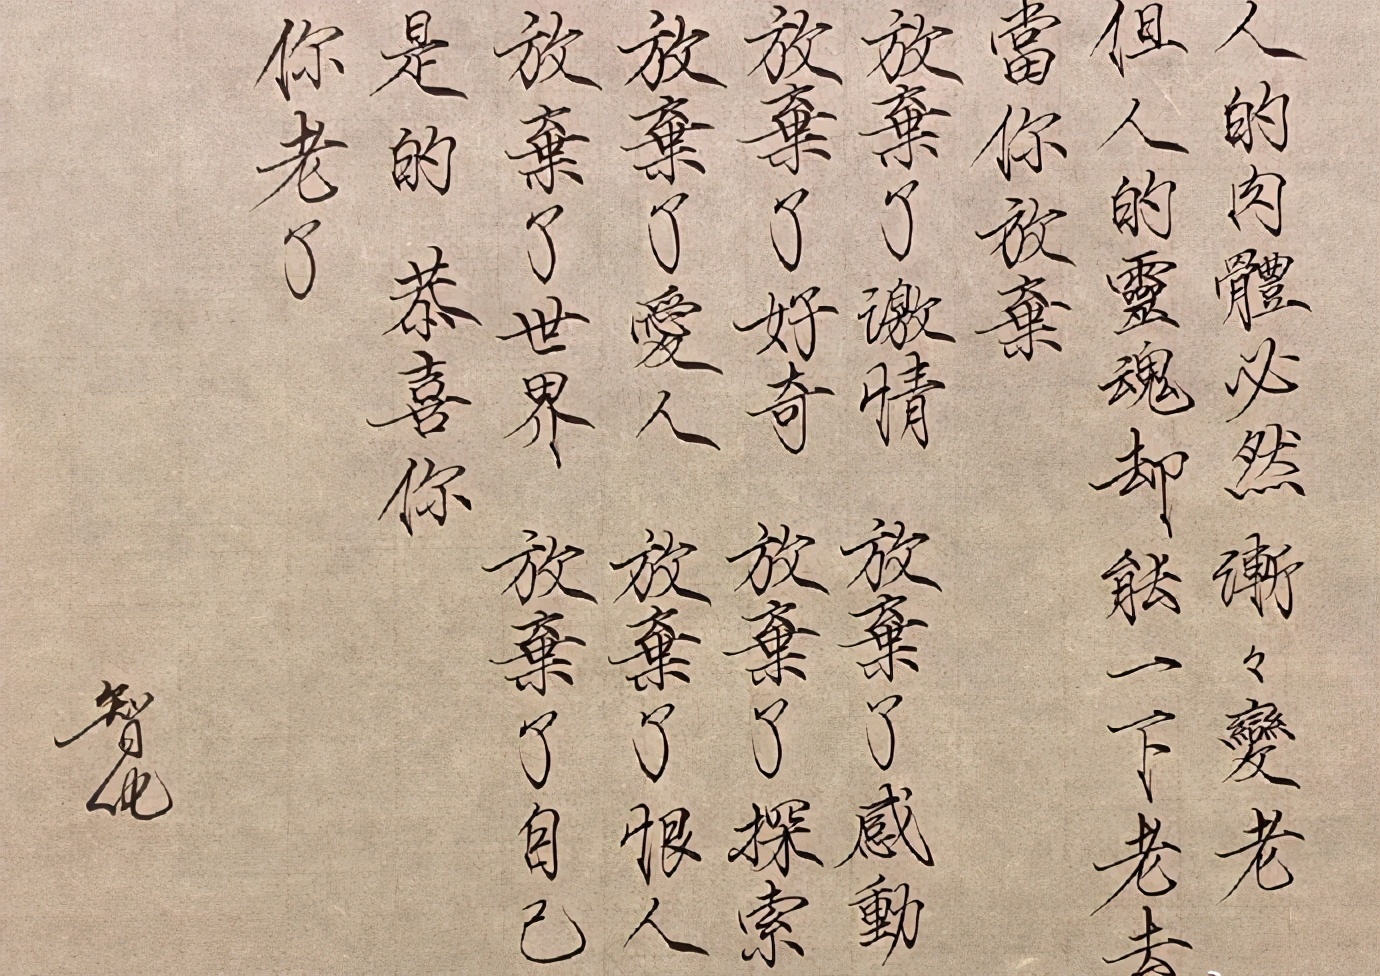 人的肉體必然漸々變老
但人的靈魂却能一下老去
當你放棄
放棄了激情 放棄了感動
放棄了好奇 放棄了探索
放棄了愛人 放棄了恨人
放棄了世界 放棄了自己
是的 恭喜你
你老了